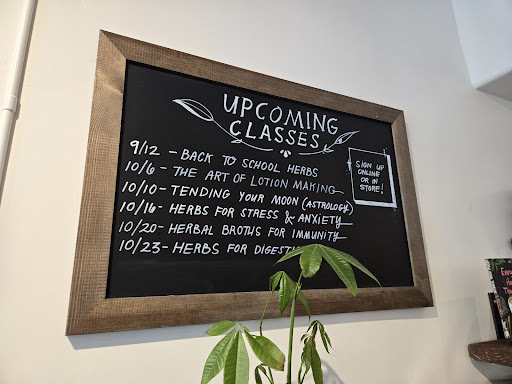 UPCOMING
CLASSES
9/12 - BACK TO SCHOOL HERBS
10/6 - THE ART OF LOTION MAKING
10/10 - TENDING YOUR MOON (ASTROLOGY)
10/16 - HERBS FOR STRESS & ANXIETY
10/20 - HERBAL BROTHS FOR IMMUNITY
10/23 - HERBS FOR
SIGN UP
ONLINE
OR IN
STORE!